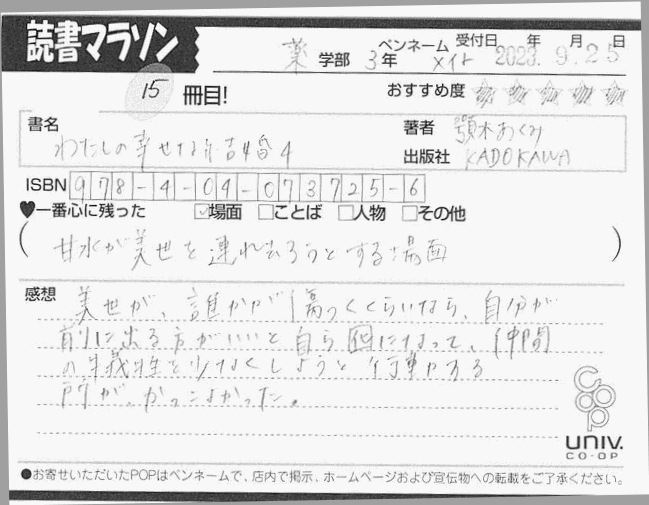 読書マラソン
薬 学部 3年 ペンネーム メイト 受付日 2023年 9月 25日
15 冊目! おすすめ度 ★★★★★
書名 わたしの幸せな結婚 4
著者 顎木あくみ
出版社 KADOKAWA
ISBN 978-4-04-073725-6
♥一番心に残った ☑場面 □ことば □人物 □その他
(甘水が美世を連れ去ろうとする場面)
感想 美世が、誰かが傷つくくらいなら、自分が
前に出る方がいいと自ら囮になって、仲間
の犠牲を少なくしようと行動する
所が、かっこよかった。
UNIV.
CO-OP
●お寄せいただいたPOPはペンネームで、店内で掲示、ホームページおよび宣伝物への転載をご了承ください。